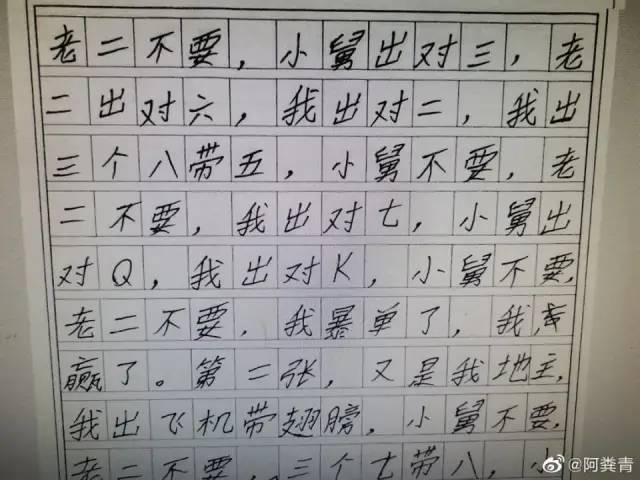 老二不要，小舅出对三，老
二出对六，我出对二，我出
三个八带五，小舅不要，老
二不要，我出对七，小舅出
对Q，我出对K，小舅不要，
老二不要，我暴单了，我
赢了。第二张，又是我地主，
我出飞机带翅膀，小舅不要，
老二不要，三个七带八，小
@阿粪青